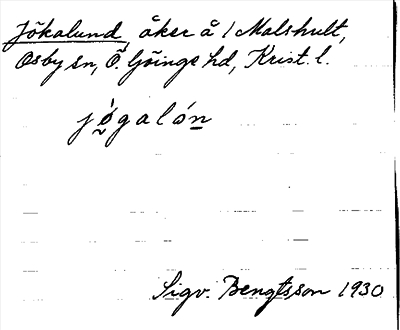 Jökalund, åker å 1 Malshult,
Osby sn, Ö. Göinge hd, Krist. l.
jø̀galón
Sigv. Bengtsson 1930